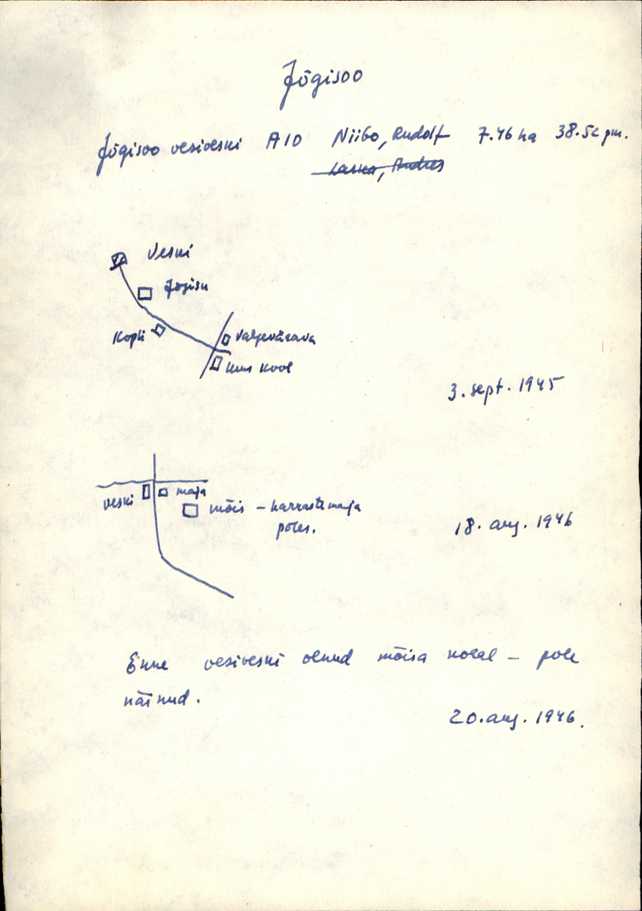 Jõgisoo
Jõgisoo vesiveski A10 Niibo, Rudolf 7.46 ha 38.52 pm.
Veski
Jõgisu
Kopli
Valjevärava
kool
3. sept. 1945
veski maja
mõis –
poles.
18. aug. 1946
Enne vesiveski olnud mõisa kohal – pole
näinud.
20. aug. 1946.